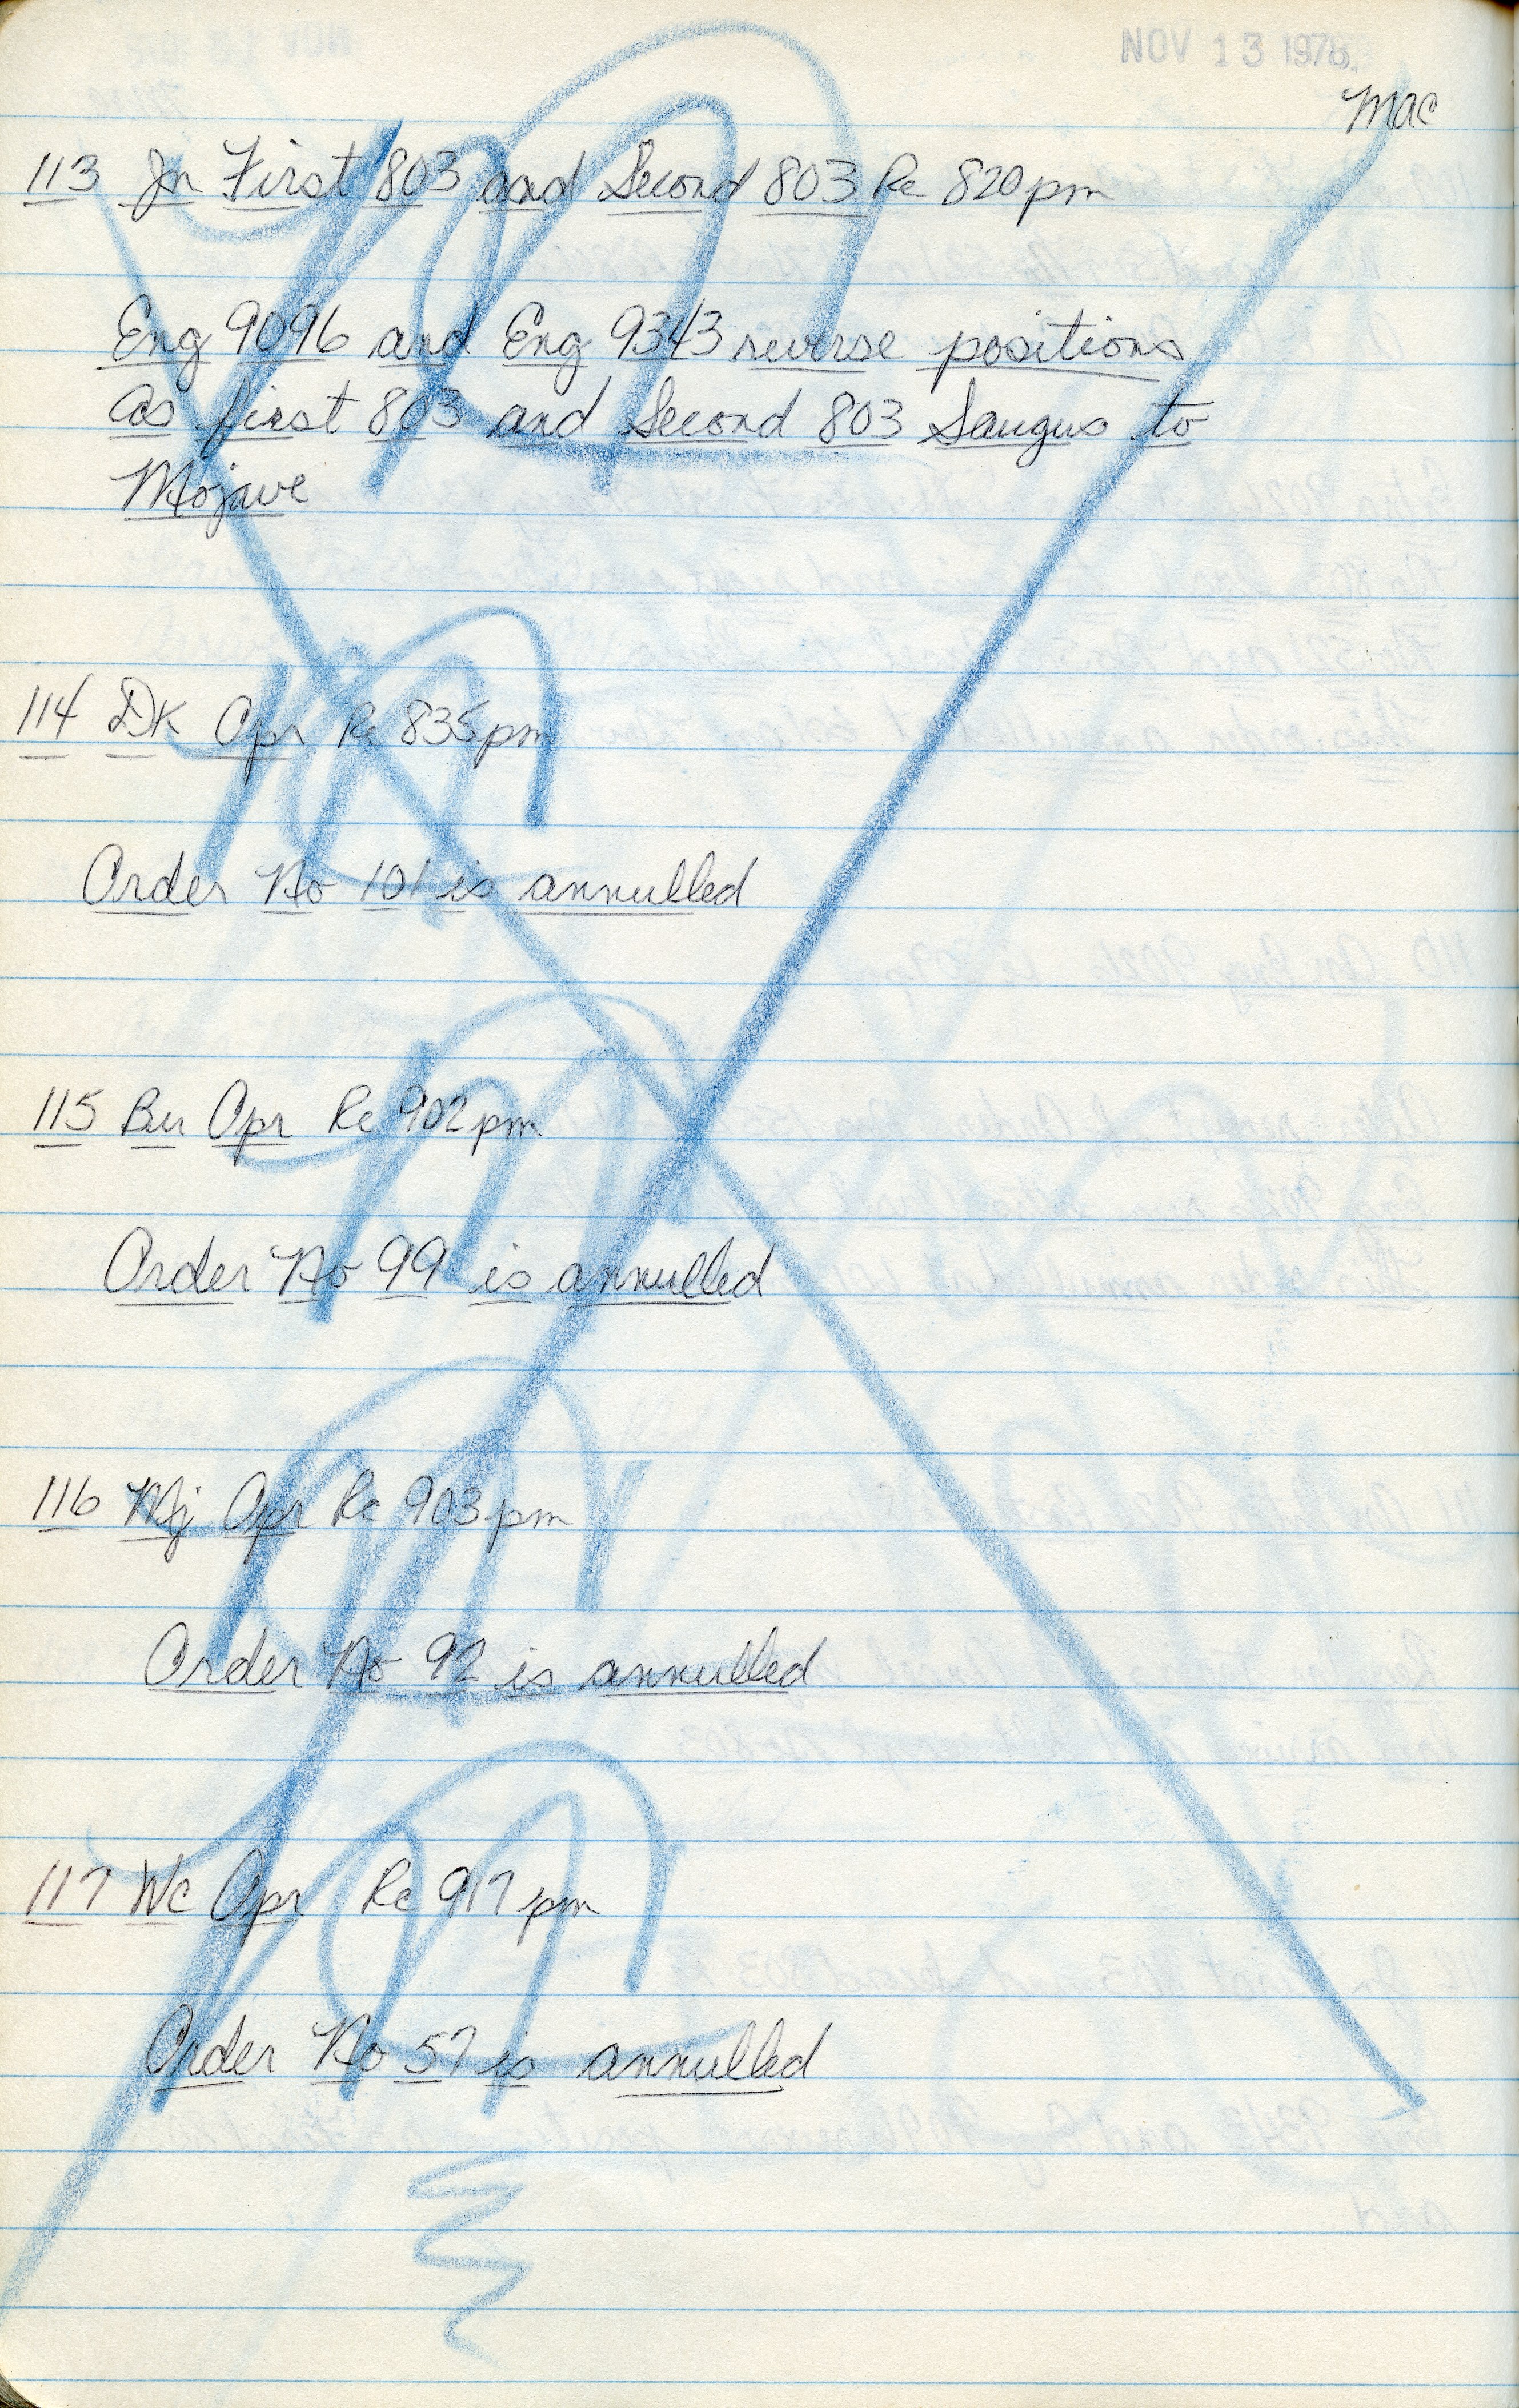 NOV 13 1978
Mac
113 Jn First 803 and Second 803 Rc 820 pm
Eng 9096 and Eng 9343 reverse positions
as first 803 and Second 803 Saugus to
Mojave
114 DK Opr Rc 835 pm
Order No 101 is annulled
115 Bu Opr Rc 902 pm
Order No 99 is annulled
116 Mj Opr Rc 903 pm
Order No 92 is annulled
117 Wc Opr Rc 917 pm
Order No 57 is annulled